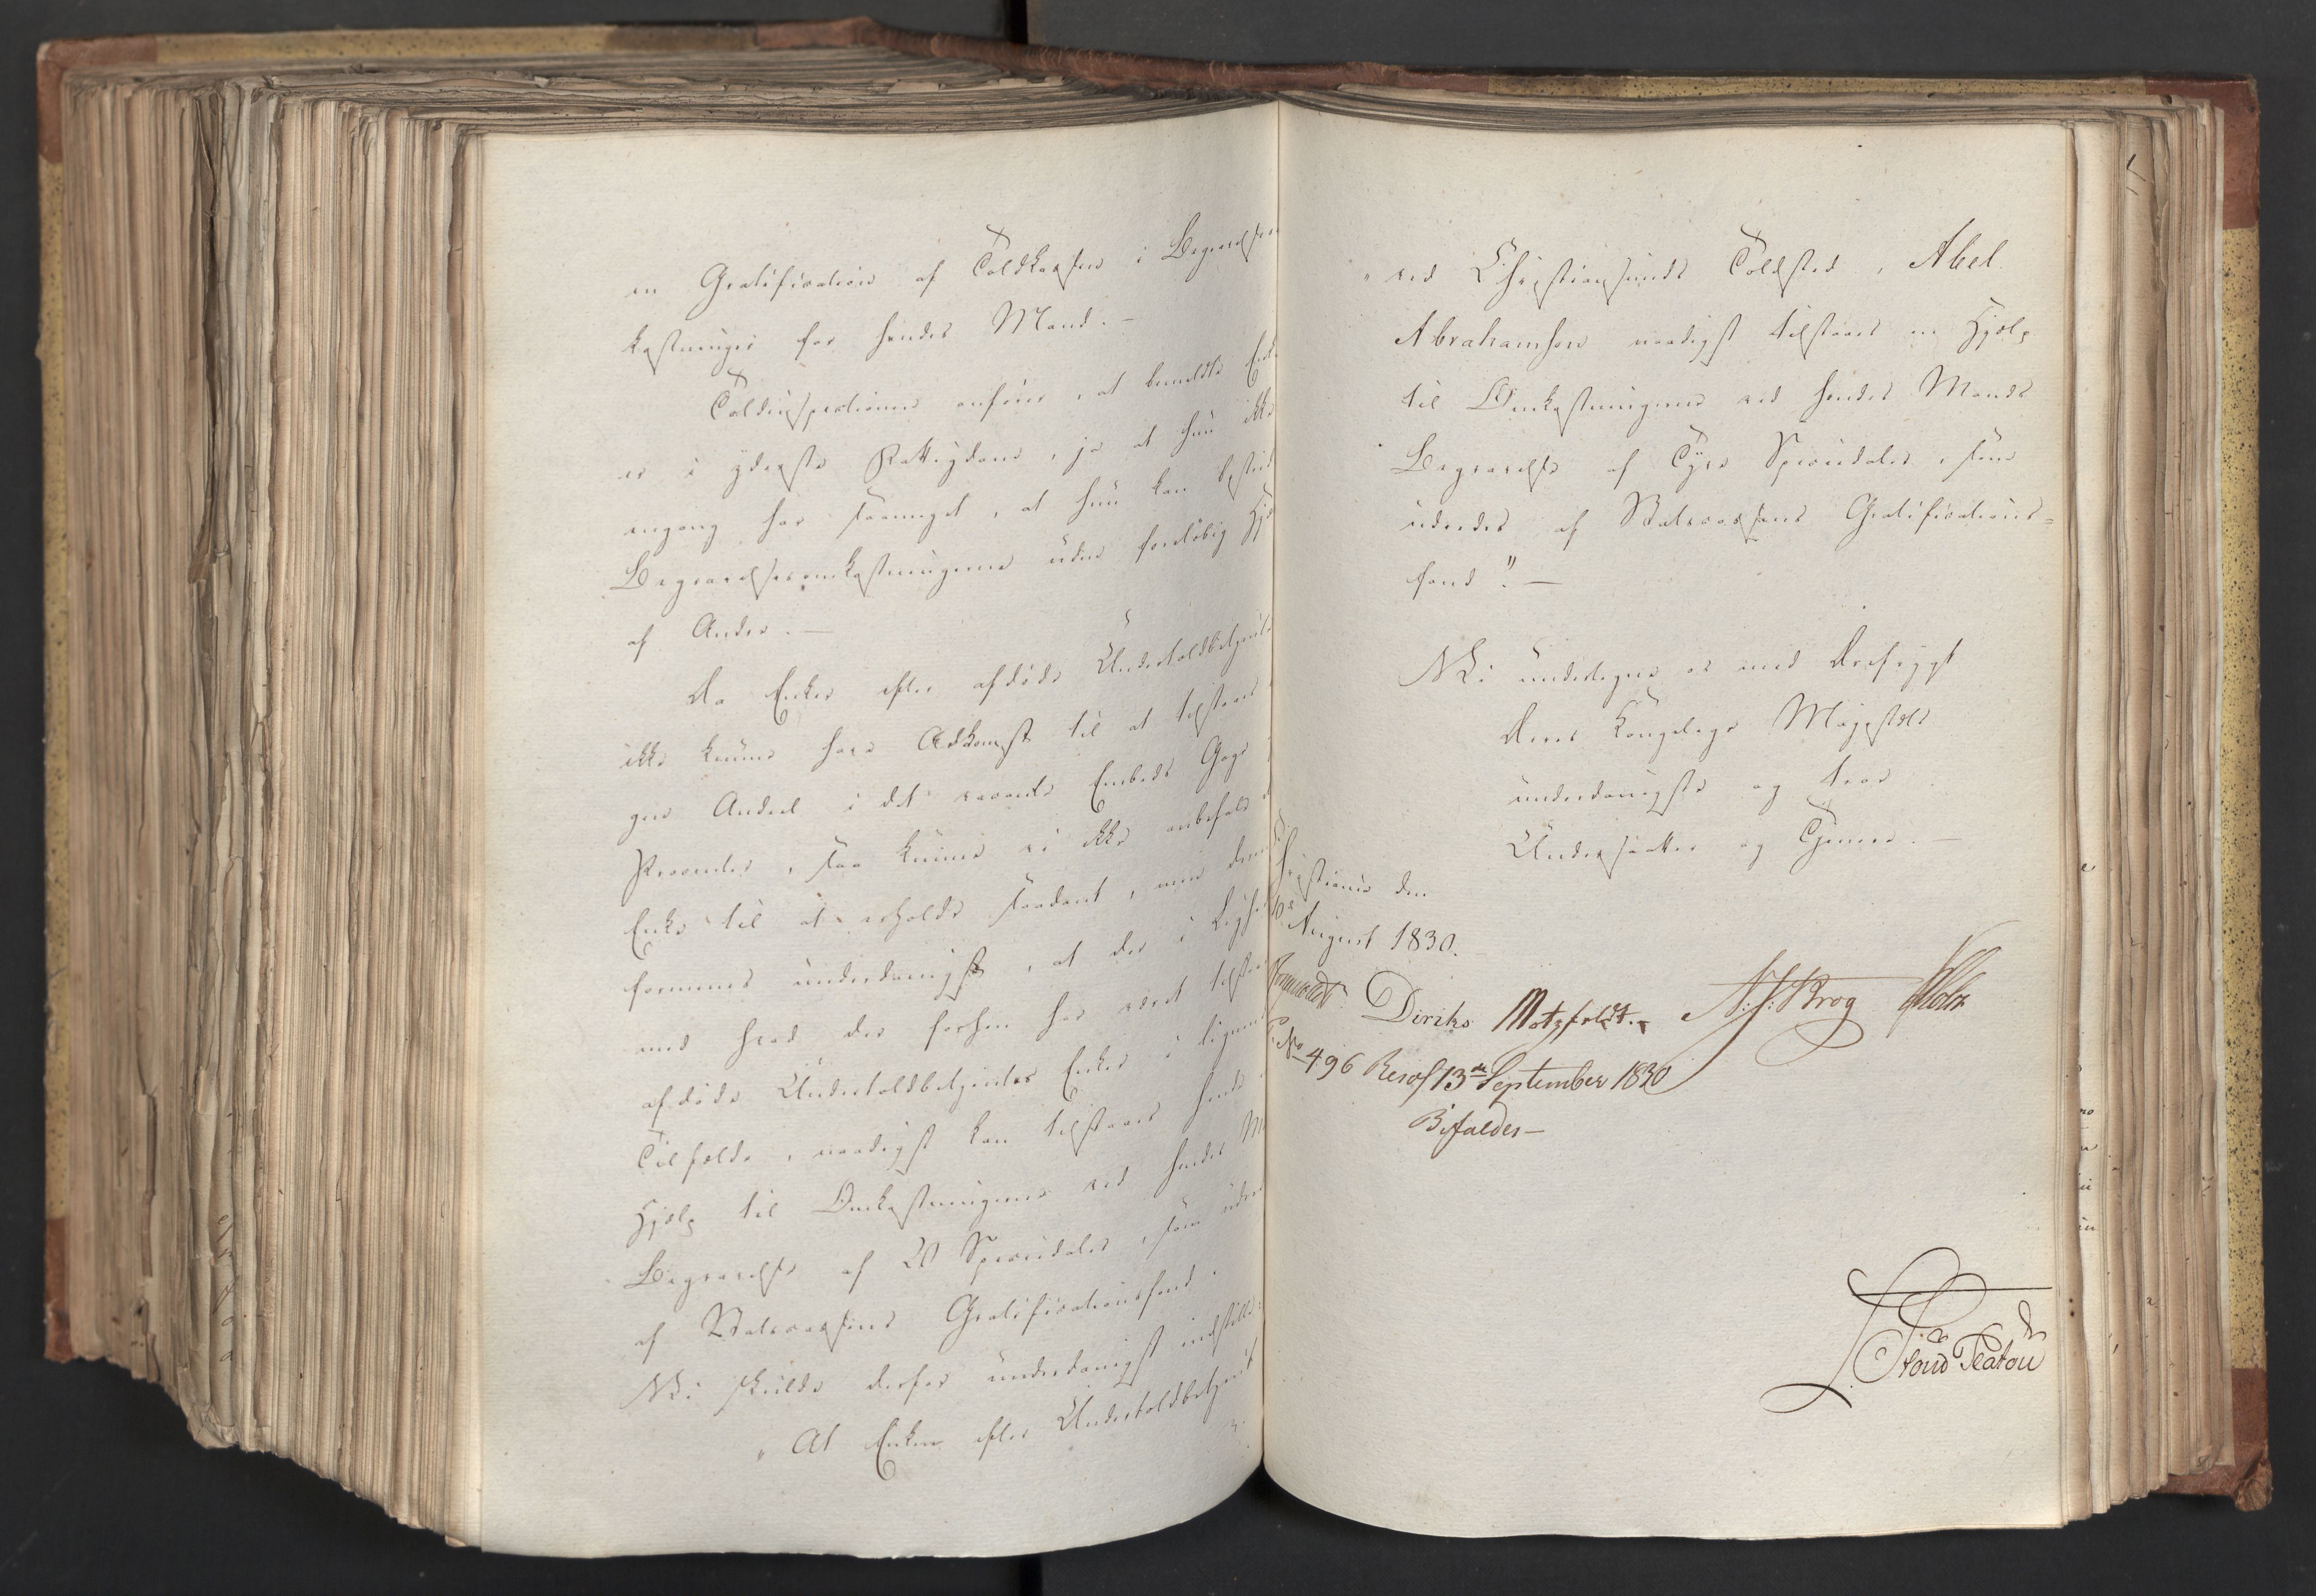 en Gratification af Toldkassen i Begravelses
kostninger for hendes Mand. —
Toldinspectionen anfører, at bemeldte Enke
er i yderste Fattigdom, ja at hun ikke
engang har saameget, at hun kan bestride
Begravelsesomkostningerne uden foreløbig Hjæ
af Andre. —
Da Enker efter afdøde Undertoldbetjente
ikke kunne have Adkomst til at tilstaaes
gen Andeel i det vacante Embeds Gage
Procenter, saa kunne vi ikke anbefale
Enke til at erholde saadant, men
formene underdanigst, at der i Lighed
med hvad der forhen har været tilstaaet
afdøde Undertoldbetjentes Enker i lignende
Tilfælde, naadigst kan tilstaaes hende
Hjælp til Omkostningerne ved hendes M
Begravelse af 20 Speciedaler, som udre
af Statscassens Gratificationsfond.
Vi skulde derfor underdanigst indstille:
„At Enken efter Undertoldbetjent
„ved Christiansunds Toldsted, Abel
Abrahamsen naadigst tilstaaes en Hjælp
til Omkostningerne ved hendes Mands
Begravelse af Tyve Speciedaler, som
udredes af Statscassens Gratifications-
fond". —
Vi undertegne os med Ærefrygt
Deres Kongelige Majestæts
underdanigste og troe
Undersaatter og Tjenere. —
Christiania den
August 1830.
Diriks Motzfeldt. Krog Holst
No 496 Resol 13de September 1830
Bifaldes —